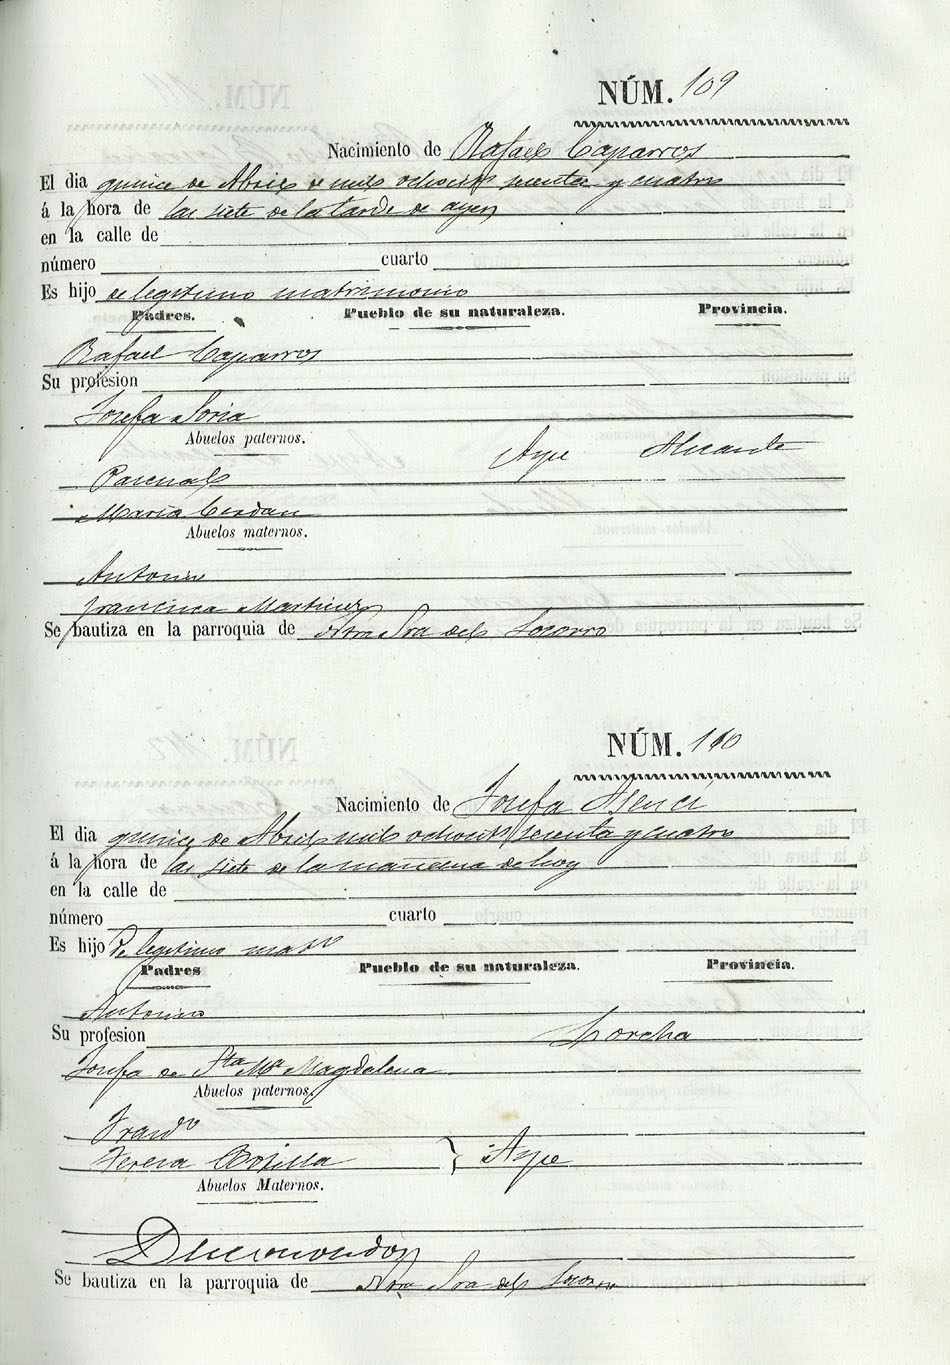 NÚM. 109
Nacimiento de Rafael Caparros
El dia quince de Abril de mil ochocits sesenta y cuatro
á la hora de las siete de la tarde de ayer
en la calle de
número cuarto
Es hijo de legitimo matrimonio
Padres. Pueblo de su naturaleza. Provincia.
Rafael Caparros
Su profesion
Josefa Soria
Abuelos paternos.
Aspe Alicante
Pascual
Maria Cerdan
Abuelos maternos.
Antonio
Francisca Martinez
Se bautiza en la parroquia de Ntra Sra del Socorro
NÚM. 110
Nacimiento de Josefa Asencí
El dia quince de Abril mil ochocits sesenta y cuatro
á la hora de las siete de la mañana de hoy
en la calle de
número cuarto
Es hijo de legitimo matº
Padres Pueblo de su naturaleza. Provincia.
Antonio
Su profesion Lorcha
Josefa de Sta Mª Magdalena
Abuelos paternos.
Franº
Teresa Botella } Aspe
Abuelos Maternos.
Desconocidos
Se bautiza en la parroquia de Ntra Sra del Socorro